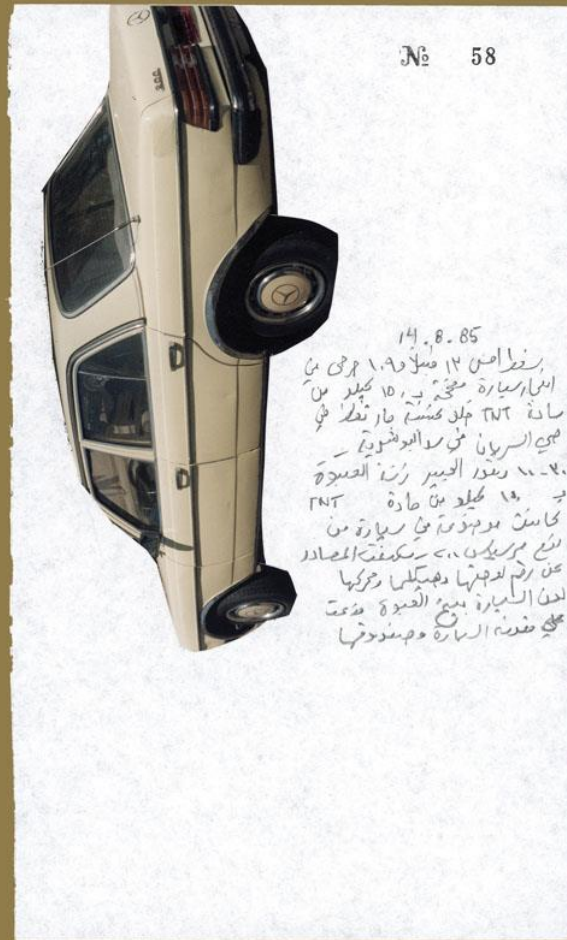 № 58
14.8.85
سقط امس ١٣ قتيلا و ١٠٩ جرحى في
انفجار سيارة مفخخة بـ ١٥٠ كيلو من
مادة TNT خلف كنيسة مار تقلا في
حي السريان في سد البوشرية
١٠،٣٠ وقدر الخبير زنة العبوة
بـ كيلو من مادة TNT
كانت موضوعة في سيارة من
نوع مرسيدس ٢٠٠ المصادر
عن رقم لوحتها وهيكلها ومحركها
لان السيارة العبوة وزعت
مقدمة السيارة وصندوقها